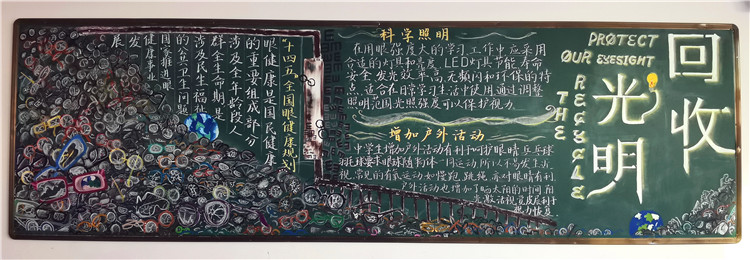 回收
光明
PROTECT
OUR EYESIGHT
RECYCLE
THE
科学照明
在用眼强度大的学习工作中应采用
合适的灯具和亮度，LED灯具节能、寿命
安全、发光效率高，无频闪和环保的特
点，适合在日常学习生活中使用，通过调整
照明范围光照强度可以保护视力。
增加户外活动
中学生增加户外活动有利于呵护眼睛，乒乓球
羽毛球
眼球随物体
运动，所以不易发生近
视，常见的有氧运动如慢跑、跳绳，亦对眼睛有利，
户外活动也增加了晒太阳的时间，阳
光激活视
利于
视力恢复
“十四五”全国眼健康规划
眼健康是国民健康
的重要组成部分
涉及全年龄段人
群全生命期，是
涉及民生福祉
的公共卫生问题
国家推进眼
健康事业
发
展